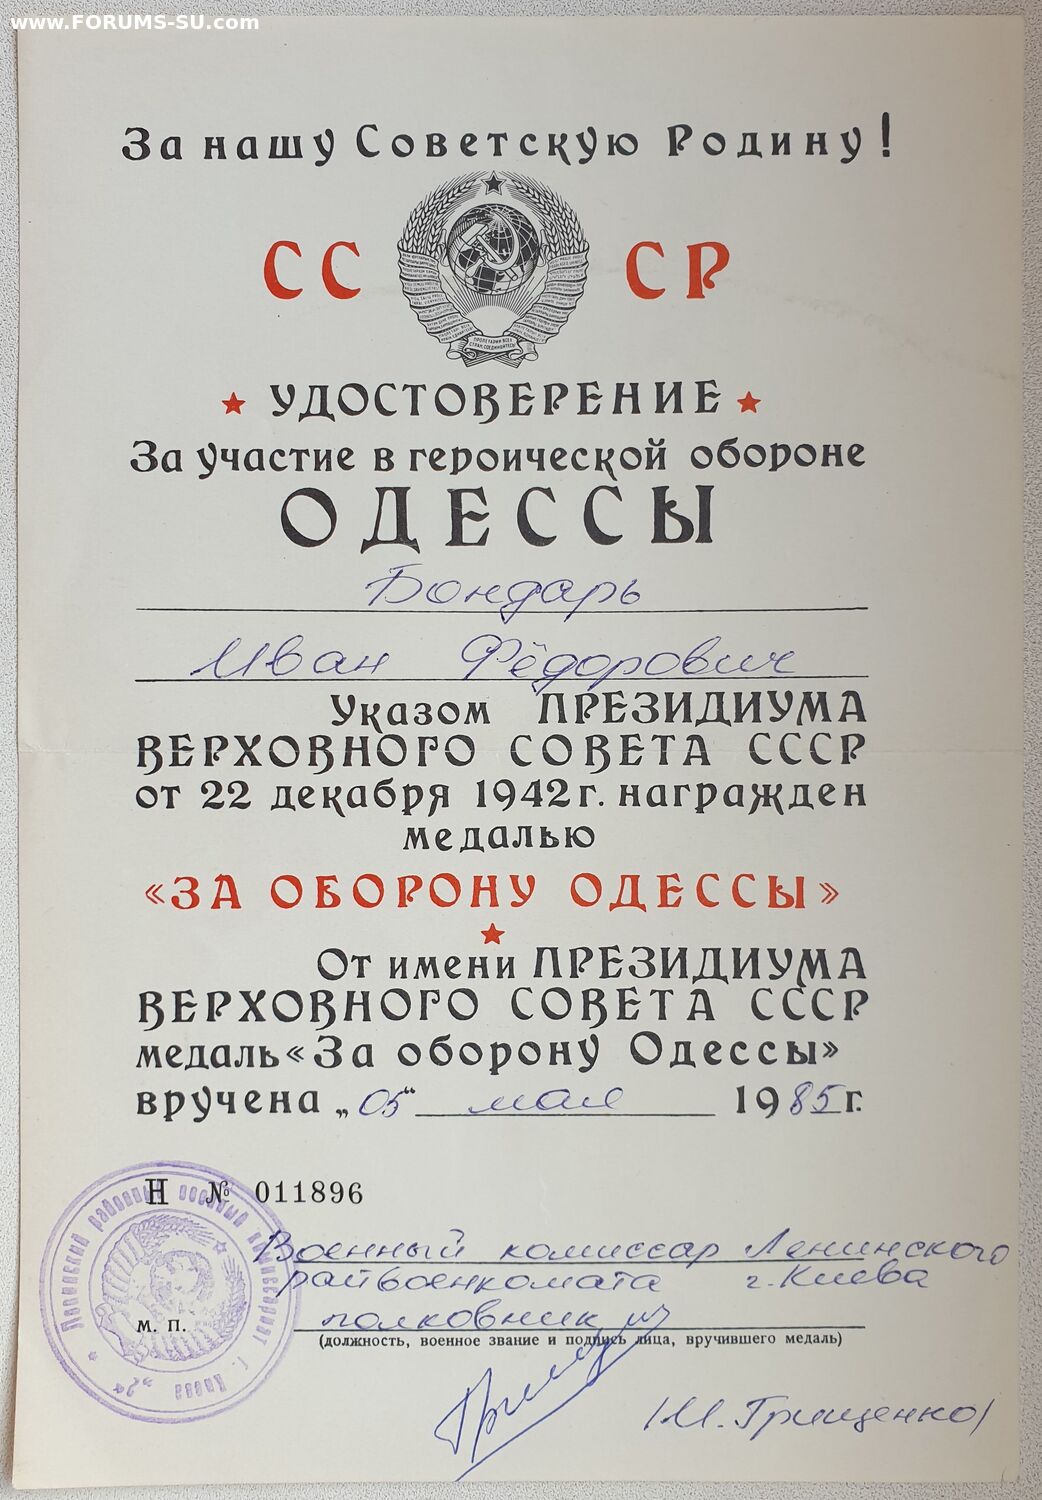 www.FORUMS-SU.com
За нашу Советскую Родину!
СС СР
ПРОЛЕТАРИИ ВСЕХ
СТРАН, СОЕДИНЯЙТЕСЬ!
УДОСТОВЕРЕНИЕ
За участие в героической обороне
ОДЕССЫ
Бондарь
Иван Фёдорович
Указом ПРЕЗИДИУМА
ВЕРХОВНОГО СОВЕТА СССР
от 22 декабря 1942 г. награжден
медалью
«ЗА ОБОРОНУ ОДЕССЫ»
От имени ПРЕЗИДИУМА
ВЕРХОВНОГО СОВЕТА СССР
медаль «За оборону Одессы»
вручена „05“ мая 1985 г.
Н № 011896
Ленинский районный военный комиссариат г. Киева "2"
Военный комиссар Ленинского
райвоенкомата г. Киева
м. п.
полковник
(должность, военное звание и подпись лица, вручившего медаль)
/М. Грищенко/